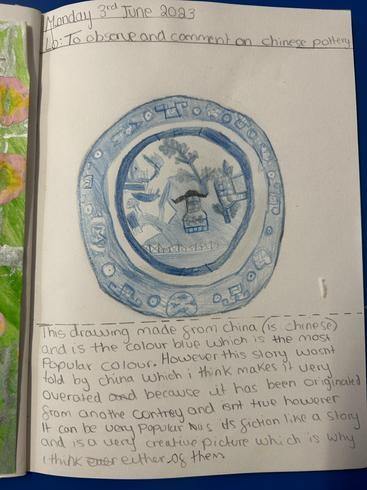 Monday 3rd June 2023
Lo: To observe and comment on chinese pottery
This drawing made from china (is chinese)
and is the colour blue which is the most
Popular colour. However this story wasnt
told by china which i think makes it very
overated and because it has been originated
from anothe contrey and isnt true however
It can be very popular its fiction like a story
and is a very creative picture which is why
i think either of them